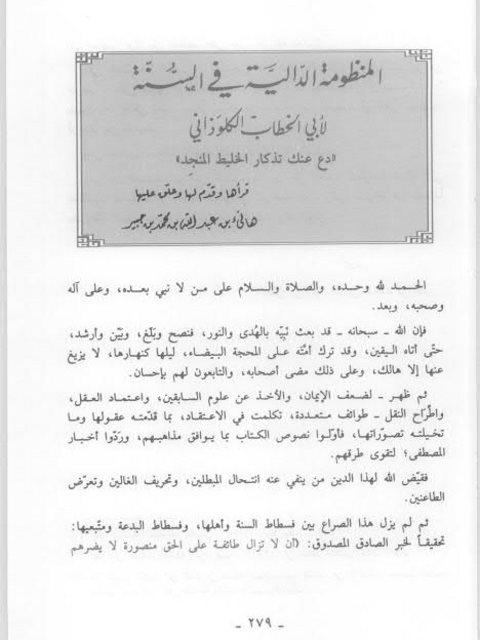 المنظومة الدّاليّة في السُّنّة
لأبي الخطاب الكلوَذاني
«دع عنك تذكار الخليط المنجِد»
قرأها وقدّم لها وعلّق عليها
هانىء بن عبد الله بن محمد بن جبير
الحمد لله وحده، والصلاة والسلام على من لا نبي بعده، وعلى آله
وصحبه، وبعد.
فإن الله - سبحانه - قد بعث نبيّه بالهُدى والنور، فنصح وبلّغ، وبيّن وأرشد،
حتّى أتاه اليقين، وقد ترك أمّته على المحجة البيضاء، ليلها كنهارها، لا يزيغ
عنها إلا هالك، وعلى ذلك مضى أصحابه، والتابعون لهم بإحسان.
ثم ظهر - لضعف الإيمان، والأخذ عن علوم السابقين، واعتماد العقل،
واطّراح النقل - طوائف متعددة، تكلمت في الاعتقاد، بما قدّمته عقولها وما
تخيلته تصوّراتها، فأوّلوا نصوص الكتاب بما يوافق مذاهبهم، وردّوا أخبار
المصطفى؛ لتقوى طرقهم.
فقيّض الله لهذا الدين من ينفي عنه انتحال المبطلين، وتحريف الغالين وتعرّض
الطاعنين.
ثم لم يزل هذا الصراع بين فسطاط السنة وأهلها، وفسطاط البدعة ومتّبعيها:
تحقيقاً لخبر الصادق المصدوق: (أن لا تزال طائفة على الحق منصورة لا يضرهم
- ٢٧٩ -